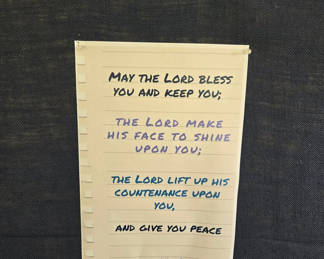 MAY THE LORD BLESS
YOU AND KEEP YOU;
THE LORD MAKE
HIS FACE TO SHINE
UPON YOU;
THE LORD LIFT UP HIS
COUNTENANCE UPON
YOU,
AND GIVE YOU PEACE